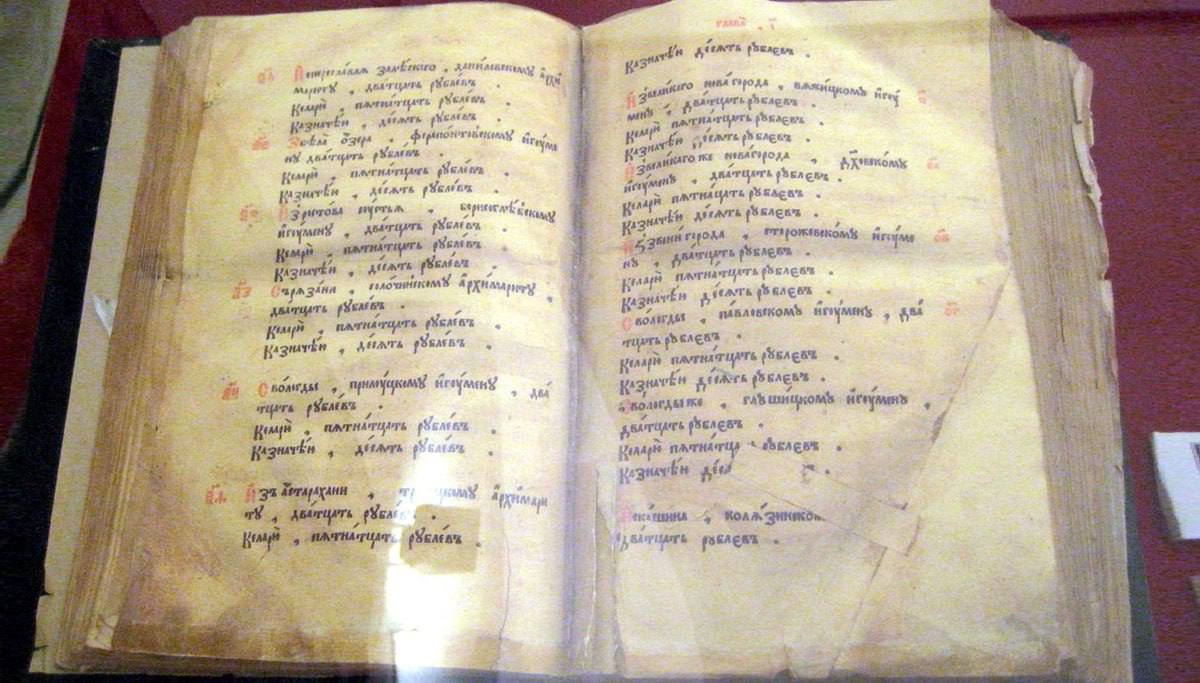 Переславля залѣскаго , данилевскому а҆рхи
мариту , два́тцать рꙋбле́въ .
Келарю̀ , пѧтна́тцать рꙋбле́въ .
Казначе́ю , де́сѧть рꙋбле́въ .
Збѣла̀ о҆зера , ферапонтовскому и҆гꙋме
ну два́тцать рꙋбле́въ .
Келарю̀ , пѧтна́тцать рꙋбле́въ .
Казначе́ю , де́сѧть рꙋбле́въ .
И҆зростова ᲂу҆́стья , борисоглѣ́бскому
и҆гꙋ́мену , два́тцать рꙋбле́въ .
Келарю̀ , пѧтна́тцать рꙋбле́въ .
Казначе́ю , де́сѧть рꙋбле́въ .
Сърѧза́на , солочинскому а҆рхимариту ,
два́тцать рꙋбле́въ .
Келарю̀ , пѧтна́тцать рꙋбле́въ .
Казначе́ю , де́сѧть рꙋбле́въ .
Сво́логды , прилꙋцкому и҆гꙋ́мену , два́
тцать рꙋбле́въ .
Келарю̀ , пѧтна́тцать рꙋбле́въ .
Казначе́ю , де́сѧть рꙋбле́въ .
И҆зъ а҆старахани , а҆рхимари
ту , два́тцать рꙋбле́въ .
Келарю̀ , пѧтна́тцать рꙋбле́въ .
глава̀
Казначе́ю де́сѧть рꙋбле́въ .
И҆звеликаго нова́города , вѧжицкому и҆гꙋ́
мену , два́тцать рꙋбле́въ .
Келарю̀ пѧтна́тцать рꙋбле́въ .
Казначе́ю де́сѧть рꙋбле́въ .
И҆звеликагоже нова́города , дх҃овскому
и҆гꙋ́мену , два́тцать рꙋбле́въ .
Келарю̀ пѧтна́тцать рꙋбле́въ .
Казначе́ю де́сѧть рꙋбле́въ .
И҆ззвени́города , сторожевско́му и҆гꙋ́ме
ну , два́тцать рꙋбле́въ .
Келарю̀ пѧтна́тцать рꙋбле́въ .
Казначе́ю де́сѧть рꙋбле́въ .
Сво́логды , павловскому и҆гꙋ́мену , два́
тцать рꙋбле́въ .
Келарю̀ пѧтна́тцать рꙋбле́въ .
Казначе́ю де́сѧть рꙋбле́въ .
Сво́логдыже , глꙋшицкому и҆гꙋ́мену ,
два́тцать рꙋбле́въ .
Келарю̀ пѧтна́тца рꙋбле́въ .
Казначе́ю де́сѧ
И҆ска́шина , колѧ́зинском
два́тцать рꙋбле́въ .